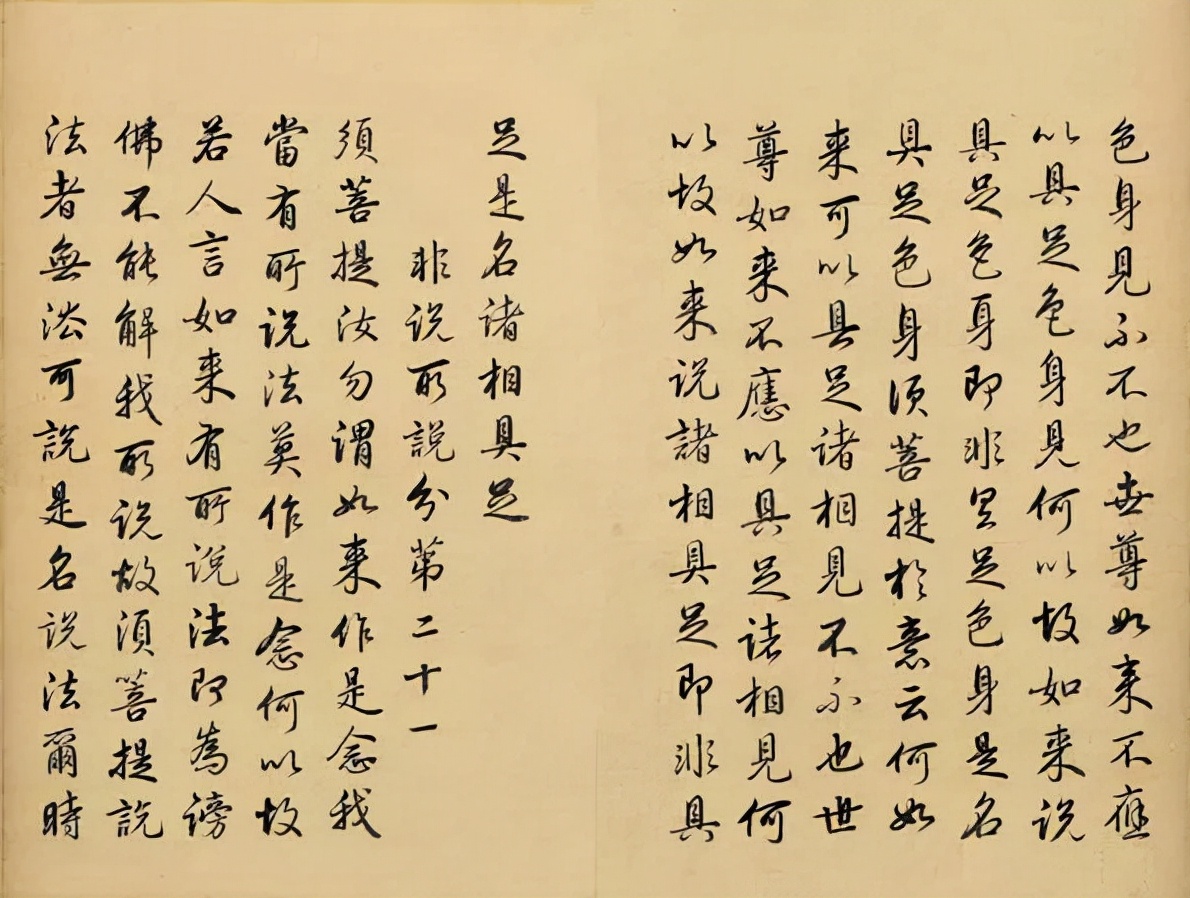 色身見不不也世尊如来不應
以具足色身見何以故如来说
具足色身即非具足色身是名
具足色身須菩提於意云何如
来可以具足諸相見不不也世
尊如来不應以具足諸相見何
以故如来说諸相具足即非具
足是名诸相具足
非说所說分第二十一
須菩提汝勿謂如来作是念我
當有所説法莫作是念何以故
若人言如来有所说法即為谤
佛不能解我所说故須菩提說
法者無法可說是名说法爾時